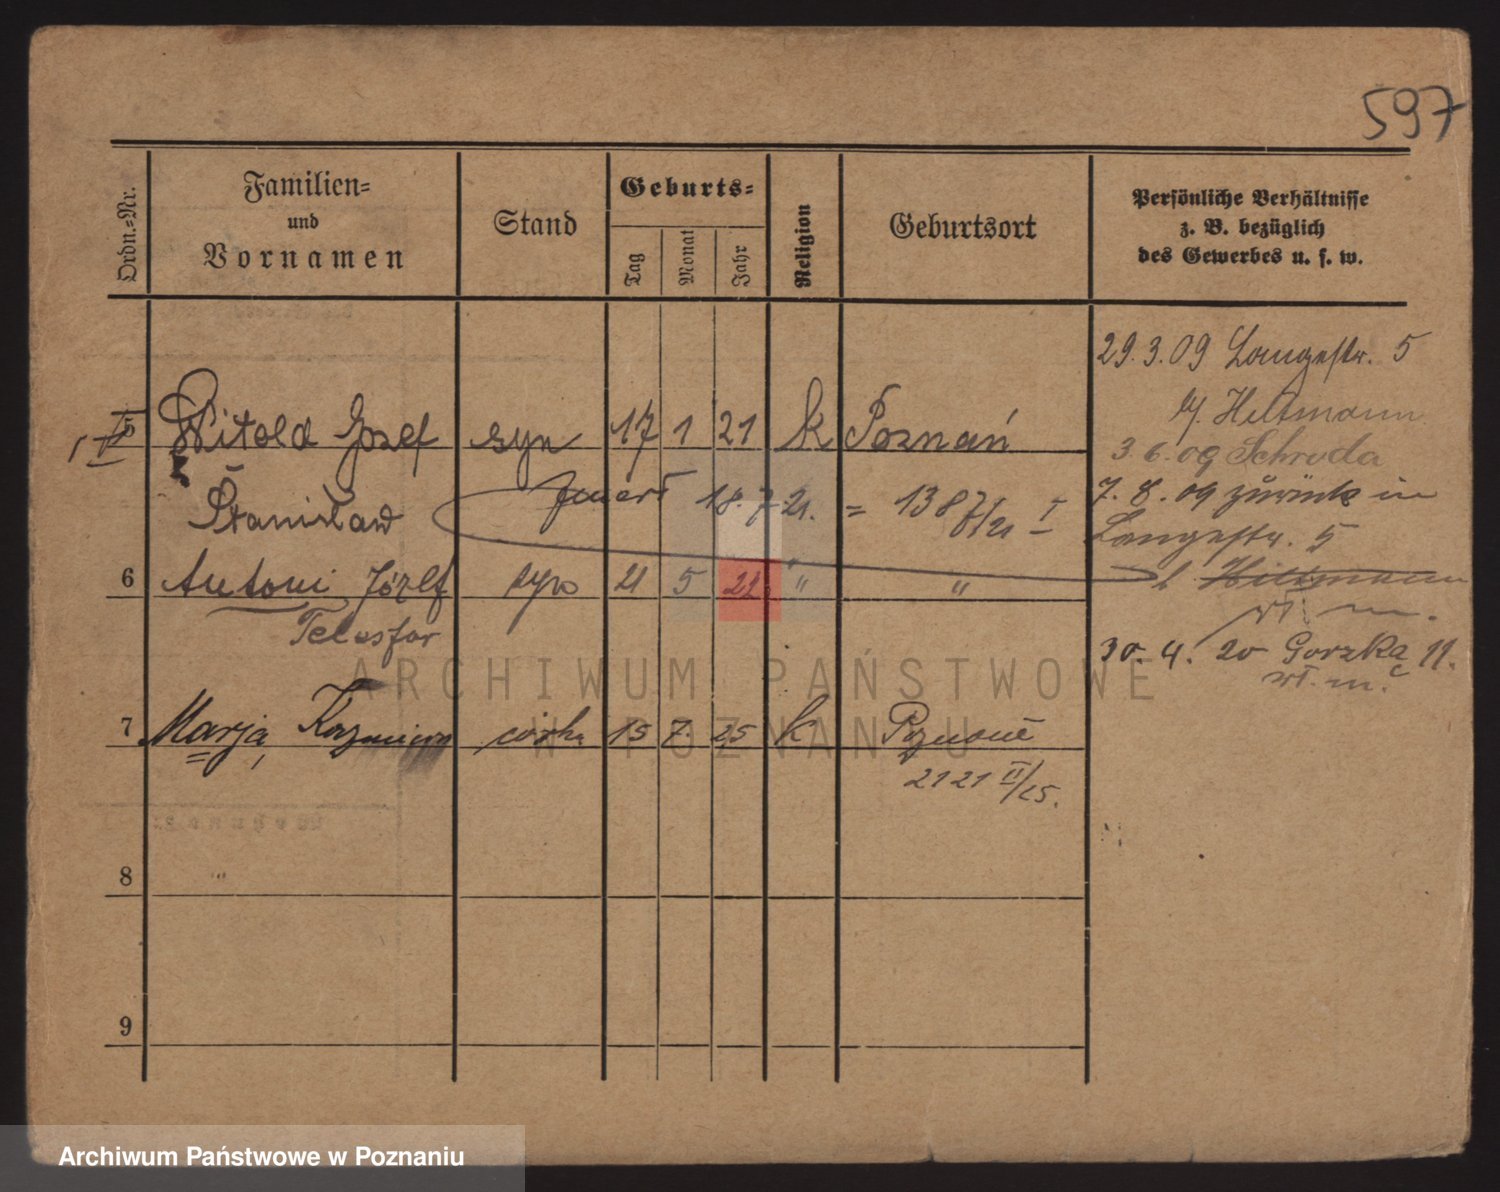 597
Ordn.=Nr.
Familien=
und
Vornamen
Stand
Geburts=
Tag
Monat
Jahr
Religion
Geburtsort
Persönliche Verhältnisse
z. B. bezüglich
des Gewerbes u. s. w.
29.3.09 Langestr. 5
Hiltmann
5 Witold Jozef syn 17 1 21 k Poznań
3.6.09 Schroda
Stanisław zmarł 18.7.21. = 1387/21 I
7.8.09 zurück in
Langestr. 5
6 Antoni Józef syn 21 5 22 " "
Hiltmann
Telesfor
30.4.20 Gorzka 11.
7 Marja Kazmiera córka 15 7 25 k Poznań
2121 II/25.
8
9
ARCHIWUM PAŃSTWOWE
W POZNANIU
Archiwum Państwowe w Poznaniu